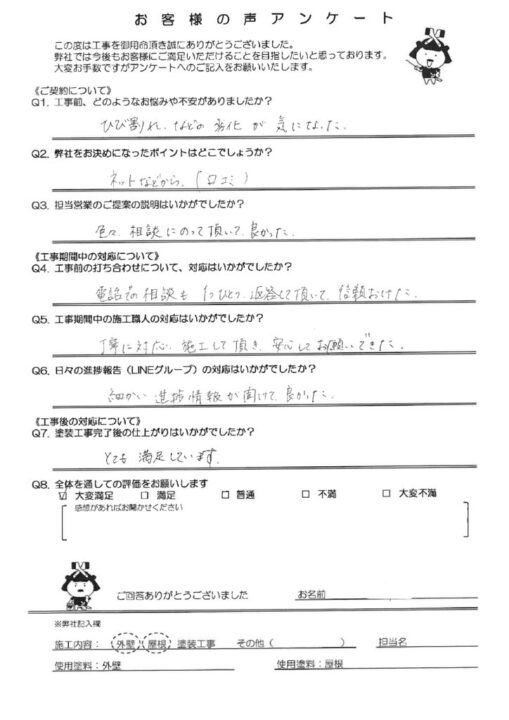 お客様の声アンケート
この度は工事を御用命頂き誠にありがとうございました。
弊社では今後もお客様にご満足いただけることを目指したいと思っております。
大変お手数ですがアンケートへのご記入をお願いいたします。
《ご契約について》
Q1. 工事前、どのようなお悩みや不安がありましたか？
ひび割れ、などの劣化が気になった。
Q2. 弊社をお決めになったポイントはどこでしょうか？
ネットなどから、(口コミ)
Q3. 担当営業のご提案の説明はいかがでしたか？
色々、相談にのって頂いて、良かった。
《工事期間中の対応について》
Q4. 工事前の打ち合わせについて、対応はいかがでしたか？
電話での相談も 1つひとつ、返答して頂いて、信頼おけた。
Q5. 工事期間中の施工職人の対応はいかがでしたか？
丁寧に対応、施工して頂き、安心してお願いできた。
Q6. 日々の進捗報告（LINEグループ）の対応はいかがでしたか？
細かい進捗情報が聞けて、良かった。
《工事後の対応について》
Q7. 塗装工事完了後の仕上がりはいかがでしたか？
とても満足しています。
Q8. 全体を通しての評価をお願いします
☑ 大変満足 □ 満足 □ 普通 □ 不満 □ 大変不満
感想があればお聞かせください
ご回答ありがとうございました お名前
※弊社記入欄
施工内容：（外壁）（屋根）塗装工事 その他（ ） 担当名
使用塗料：外壁 使用塗料：屋根